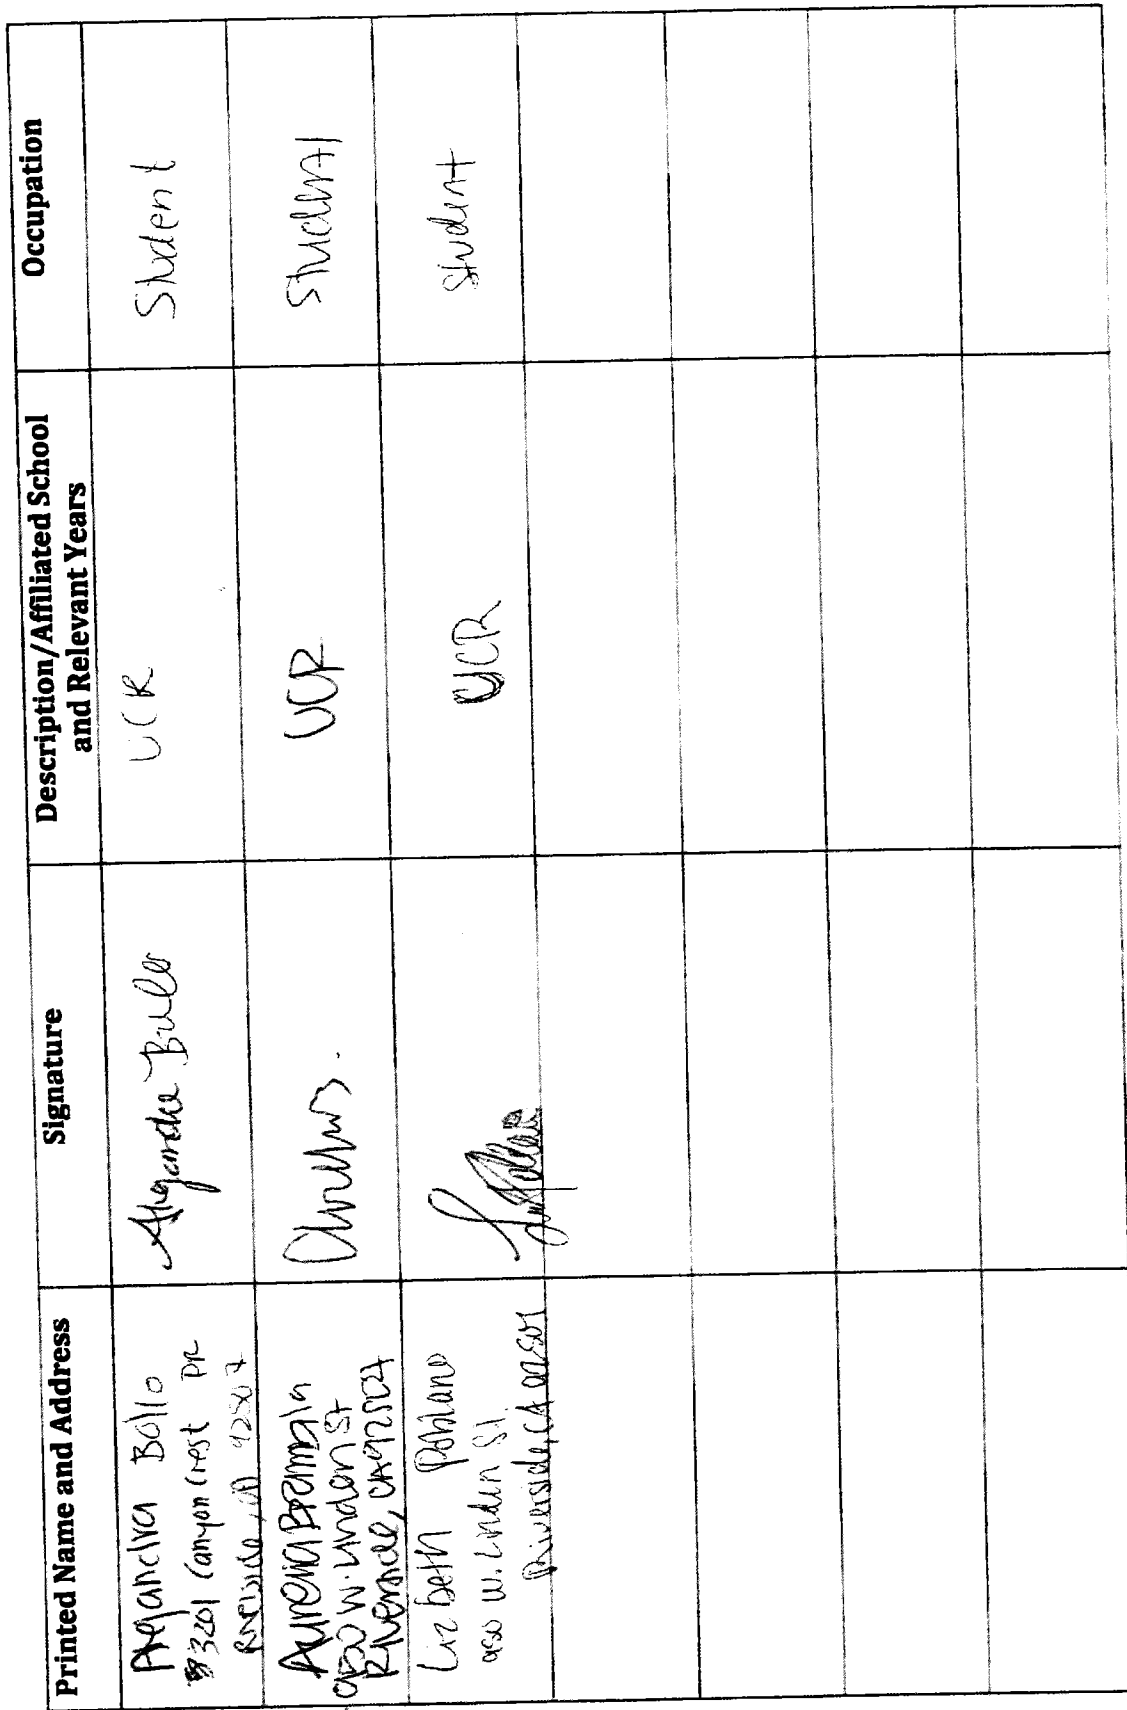 Printed Name and Address
Signature
Description/Affiliated School
and Relevant Years
Occupation
Bollo
3201 Canyon Crest Dr
92507
UCR
Student
Aurelia Brambila
950 W. Linden St
Riverside, CA 92507
UCR
Student
Lizbeth Poblano
950 W. Linden St.
Riverside, CA 92507
UCR
Student